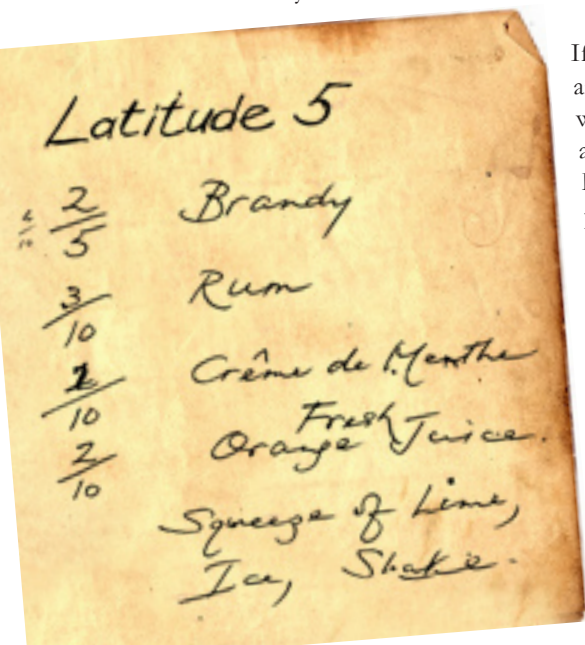 Latitude 5
2/5 Brandy
3/10 Rum
1/10 Crême de Menthe
Fresh
2/10 Orange Juice.
Squeeze of Lime,
Ice, Shake.
If